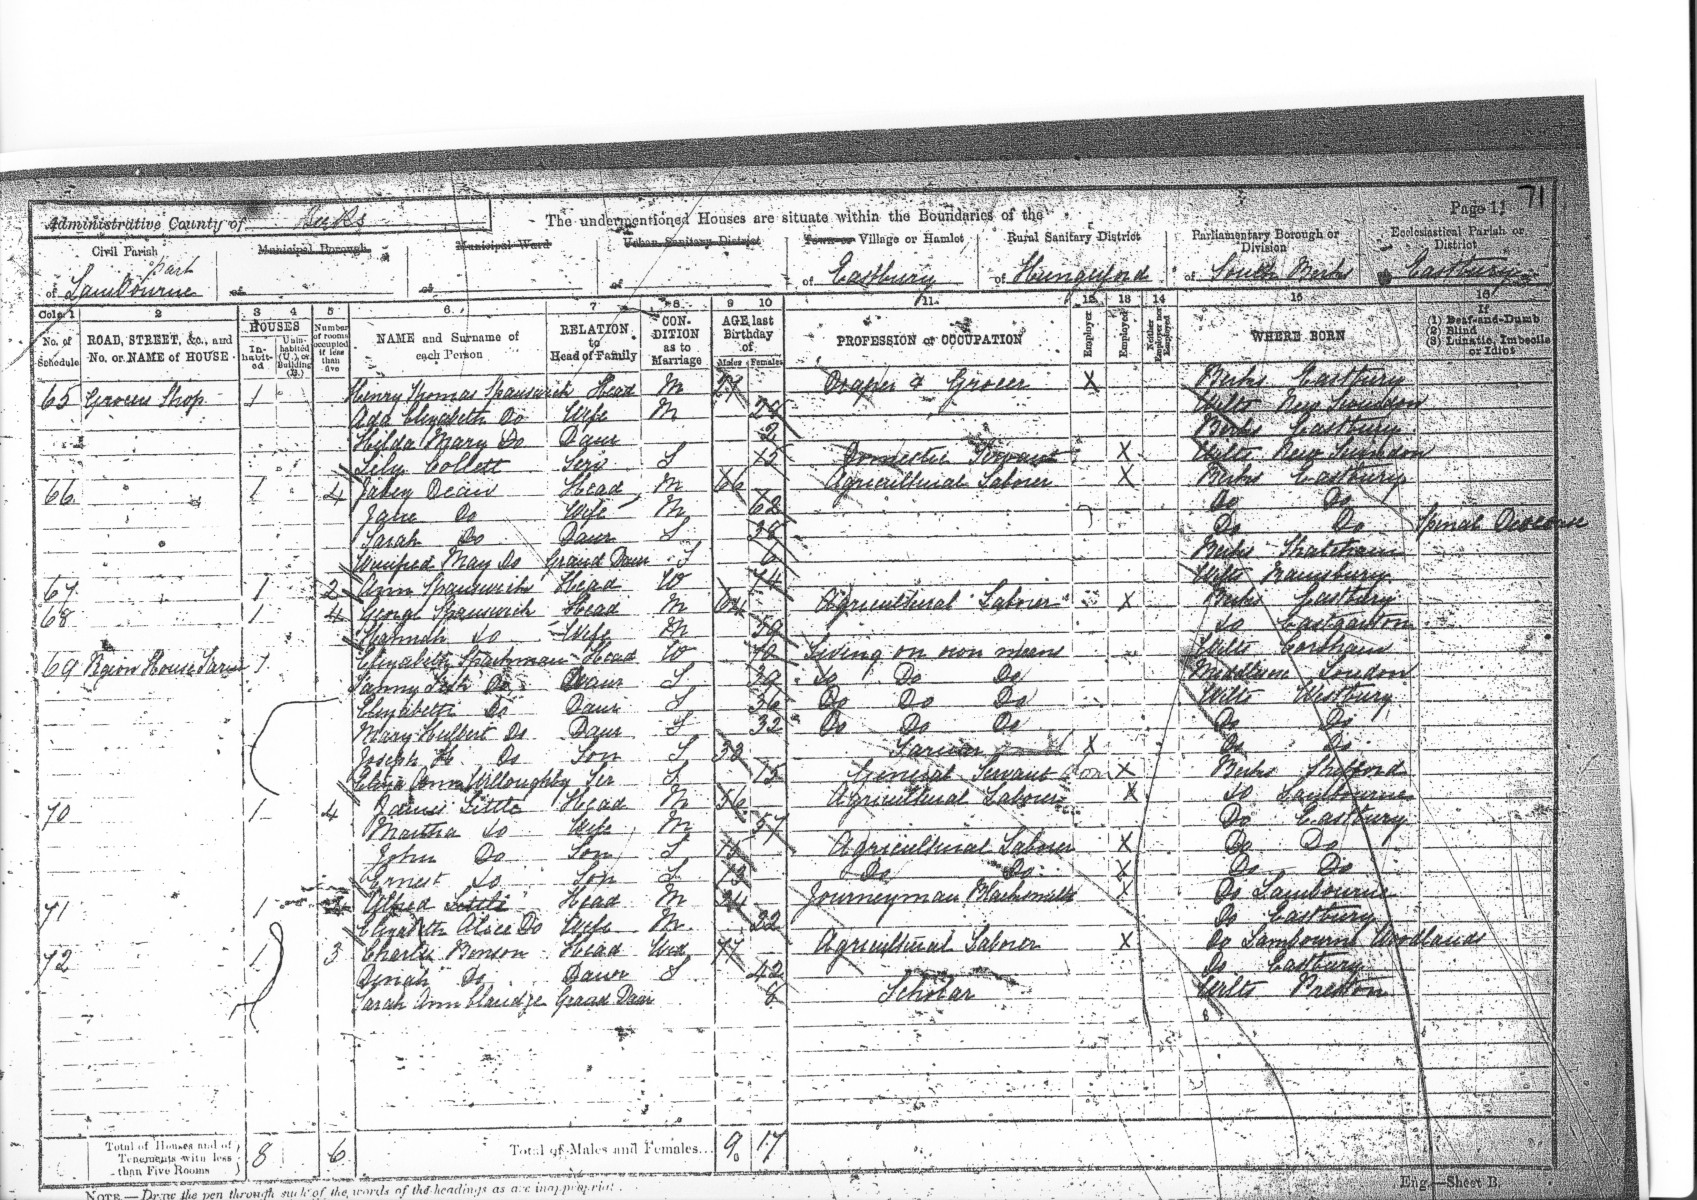 Page 11 71
Administrative County of Berks
The undermentioned Houses are situate within the Boundaries of the
Civil Parish
Municipal Borough
Municipal Ward
Urban Sanitary District
Town or Village or Hamlet
Rural Sanitary District
Parliamentary Borough or Division
Ecclesiastical Parish or District
of Lambourne part
of
of
of
of Eastbury
of Hungerford
of South Berks
of Eastbury
Cols. 1 2 3 4 5 6 7 8 9 10 11 12 13 14 15 16
No. of Schedule
ROAD, STREET, &c., and No. or NAME of HOUSE
HOUSES
In-habit-ed
Unin-habited (U.), or Building (B.)
Number of rooms occupied if less than five
NAME and Surname of each Person
RELATION to Head of Family
CON-DITION as to Marriage
AGE last Birthday of
Males Females
PROFESSION or OCCUPATION
Employer
Employed
Neither Employer nor Employed
WHERE BORN
If (1) Deaf-and-Dumb (2) Blind (3) Lunatic, Imbecile or Idiot
65 Grocers Shop 1 Henry Thomas Spanswick Head M 27 Draper & Grocer X Berks Eastbury
Ada Elizabeth Do Wife M Wilts New Swindon
Hilda Mary Do Daur 2 Berks Eastbury
Lily Collett Serv S 15 Domestic Servant X Wilts New Swindon
66 1 4 Jabez Dean Head M 66 Agricultural Laborer X Berks Eastbury
Jane Do Wife M 62 Do Do
Sarah Do Daur S 38 Do Do Spinal
Winifred May Do Grand Daur S 6 Berks Thatcham
67 1 2 Ann Spanswick Head W 74 Wilts Ramsbury
68 1 4 George Spanswick Head M 64 Agricultural Laborer X Berks Eastbury
Hannah Do Wife M 59 Do Eastgarston
69 House Farm 1 Elizabeth Head W Living on own means Wilts Corsham
Fanny Do Daur S 39 Do Do Do Middlesex London
Elizabeth Do Daur S 36 Do Do Do Wilts Westbury
Mary Hulbert Do Daur S 32 Do Do Do Do Do
Joseph H. Do Son S 33 Farmer X Do Do
Eliza Ann Willoughby Ser S 15 General Servant X Berks Shefford
70 1 4 James Little Head M 56 Agricultural Laborer X Do Lambourne
Martha Do Wife M 57 Do Eastbury
John Do Son S Agricultural Laborer X Do Do
Ernest Do Son S 13 Do Do X Do Do
71 1 Alfred Little Head M 24 Journeyman Blacksmith X Do Lambourne
Elizabeth Alice Do Wife M 22 Do Eastbury
72 1 3 Charles Benson Head Wid 77 Agricultural Laborer X Do Lambourne Woodlands
Dinah Do Daur S 42 Do Eastbury
Sarah Ann Grand Daur 8 Scholar Wilts Preston
Total of Houses and of Tenements with less than Five Rooms 8 6
Total of Males and Females... 9 17
NOTE.—Draw the pen through such of the words of the headings as are inappropriate.
Eng.—Sheet B.